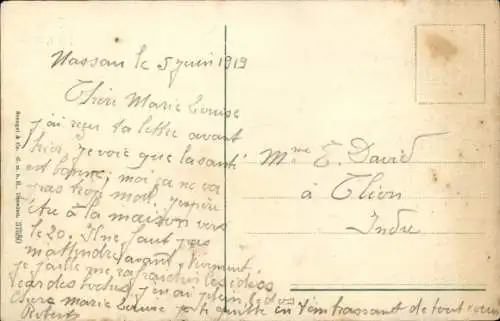 Nassau le 5 juin 1919
Chère Marie Louise
j'ai reçu ta lettre avant
hier, je voie que la santé
est bonne; moi ça ne va
pas trop mal. J'espère
être à la maison vers
le 20. Il ne faut pas
m'attendre avant. Vivement
que je me rafraichir les idées
car des boches j'en ai plein le dos
Chère Marie Louise je te quitte en t'embrassant de tout
Robert
Mme E. David
à Clion
Indre
Stengel & Co., G. m. b. H., Dresden. 37680